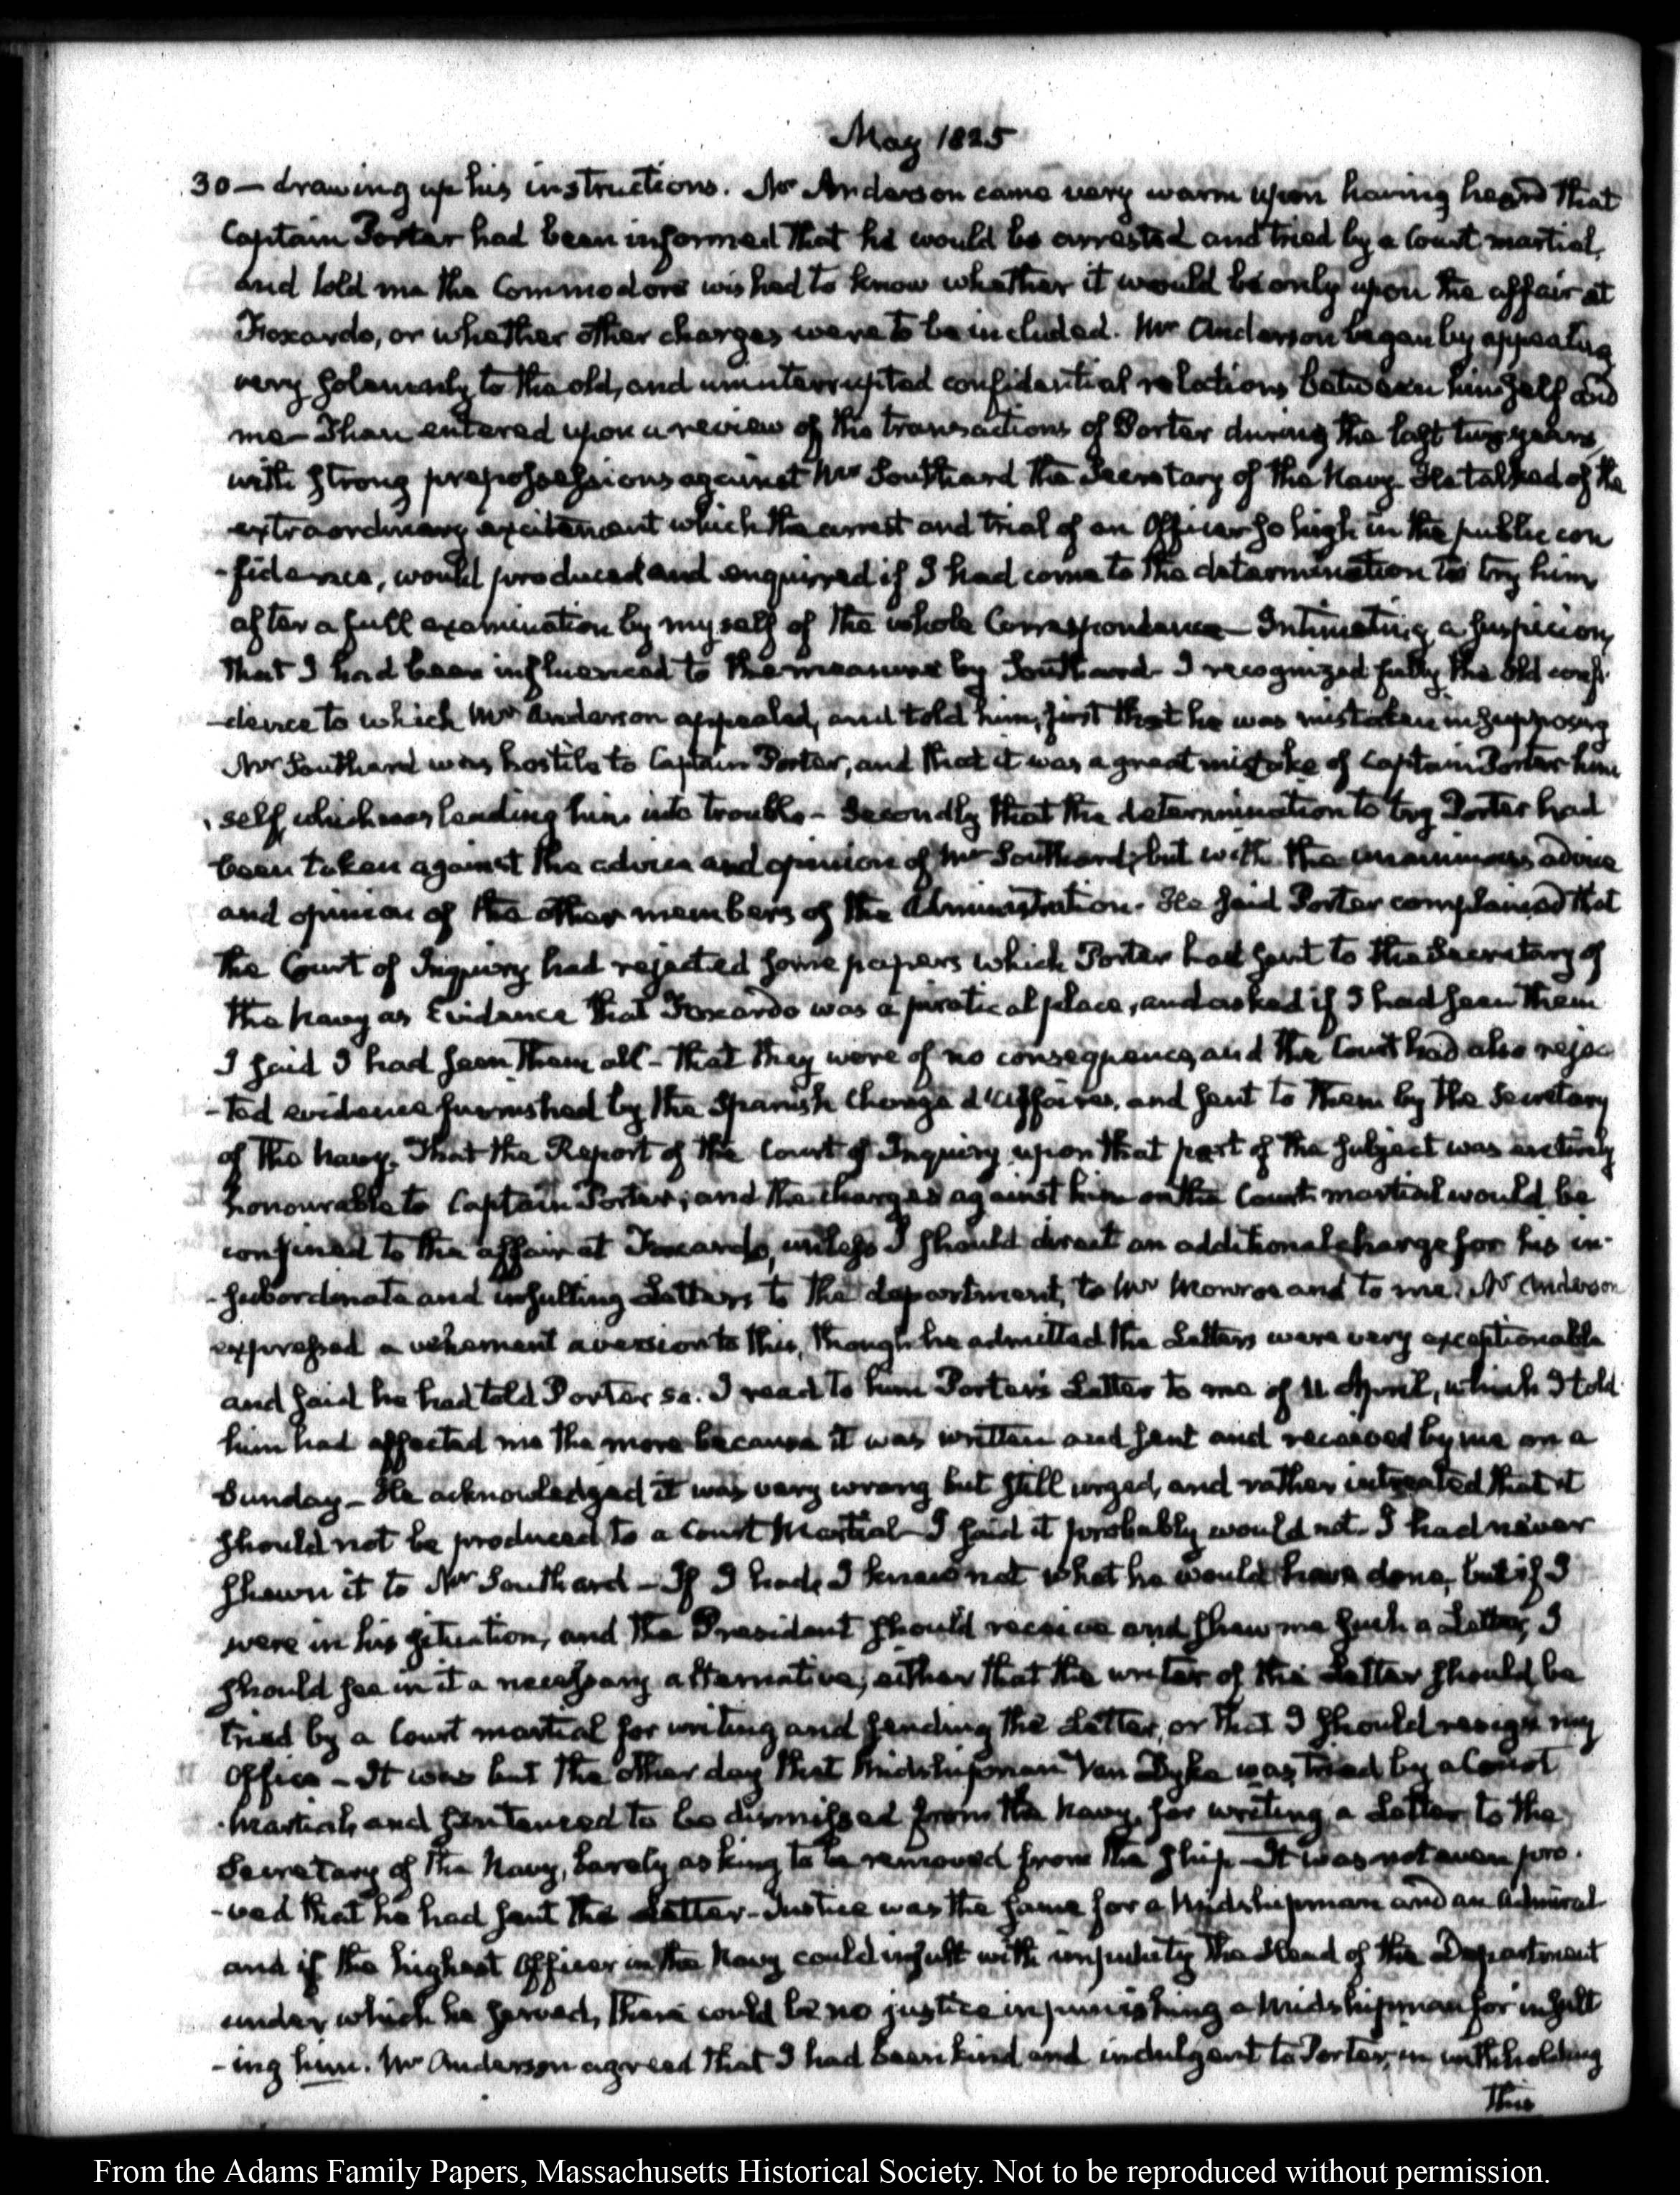 May 1825
30 — drawing up his instructions. Mr Anderson came very warm upon having heard that
Captain Porter had been informed that he would be arrested and tried by a Court martial,
and told me the Commodore wished to know whether it would be only upon the affair at
Foxardo, or whether other charges were to be included. Mr Anderson began by appealing
very solemnly to the old, and uninterrupted confidential relations between himself and
me — Then entered upon a review of the transactions of Porter during the last two years,
with strong prepossessions against Mr Southard the Secretary of the Navy. He talked of the
extraordinary excitement which the arrest and trial of an Officer so high in the public con
-fidence, would produce and enquired if I had come to the determination to try him,
after a full examination by myself of the whole Correspondence — Intimating a suspicion,
that I had been influenced to the measure by Southard — I recognized fully the old confi-
-dence to which Mr Anderson appealed, and told him, first that he was mistaken in supposing
Mr Southard was hostile to Captain Porter, and that it was a great mistake of Captain Porter him
self, which was leading him into trouble — Secondly that the determination to try Porter had
been taken against the advice and opinion of Mr Southard, but with the unanimous advice
and opinion of the other members of the Administration. He said Porter complained that
the Court of Inquiry had rejected some papers which Porter had sent to the Secretary of
the Navy as Evidence that Foxardo was a piratical place, and asked if I had seen them
I said I had seen them all — that they were of no consequence, and the Court had also rejec
-ted evidence furnished by the Spanish Chargé d'Affaires, and sent to them by the Secretary
of the Navy. That the Report of the Court of Inquiry upon that part of the subject was entirely
honourable to Captain Porter; and the charges against him on the Court martial would be
confined to the affair at Foxardo, unless I should direct an additional charge for his in-
-subordinate and insulting Letters to the department, to Mr Monroe and to me. Mr Anderson
expressed a vehement aversion to this, though he admitted the Letters were very exceptionable
and said he had told Porter so. I read to him Porter's Letter to me of 11 April, which I told
him had affected me the more because it was written and sent and received by me on a
Sunday — He acknowledged it was very wrong but still urged, and rather intreated that it
should not be produced to a Court Martial — I said it probably would not. I had never
shewn it to Mr Southard — If I had, I knew not what he would have done, but if I
were in his situation, and the President should receive and shew me such a Letter, I
should see in it a necessary alternative, either that the writer of the Letter should be
tried by a Court martial for writing and sending the Letter, or that I should resign my
Office — It was but the other day that Midshipman Van Dyke was tried by a Court
Martial, and sentenced to be dismissed from the Navy, for writing a Letter to the
Secretary of the Navy, barely asking to be removed from the ship — It was not even pro-
-ved that he had sent the Letter — Justice was the same for a Midshipman and an Admiral
and if the highest Officer in the Navy could insult with impunity the Head of the Department
under which he served, there could be no justice in punishing a Midshipman for insult
-ing him. Mr Anderson agreed that I had been kind and indulgent to Porter, in withholding
this
From the Adams Family Papers, Massachusetts Historical Society. Not to be reproduced without permission.